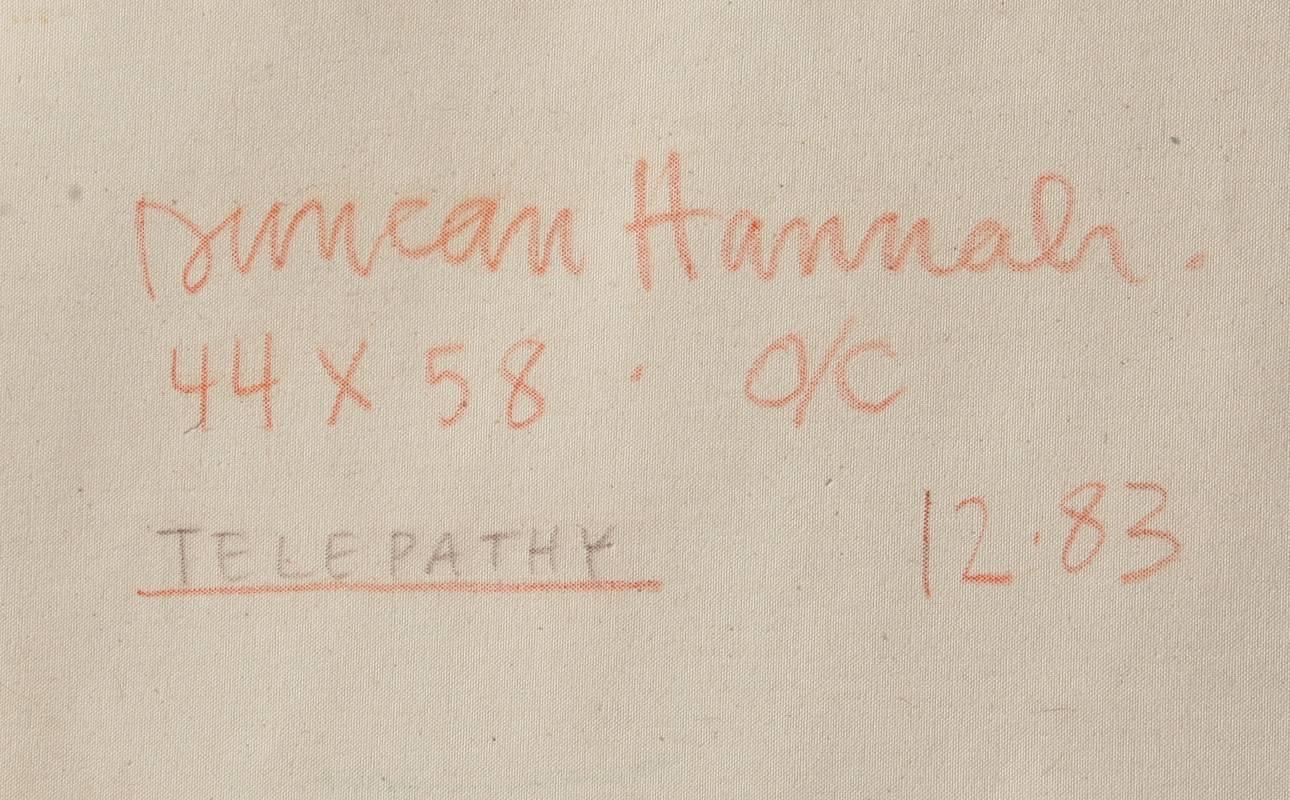 Duncan Hannah.
44 X 58 · O/C
TELEPATHY
12·83